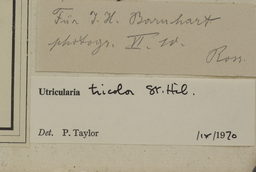 Für J. H. Barnhart
photogr. II. 10.
Ross.
Utricularia tricolor St. Hil.
Det. P. Taylor /IV/1970